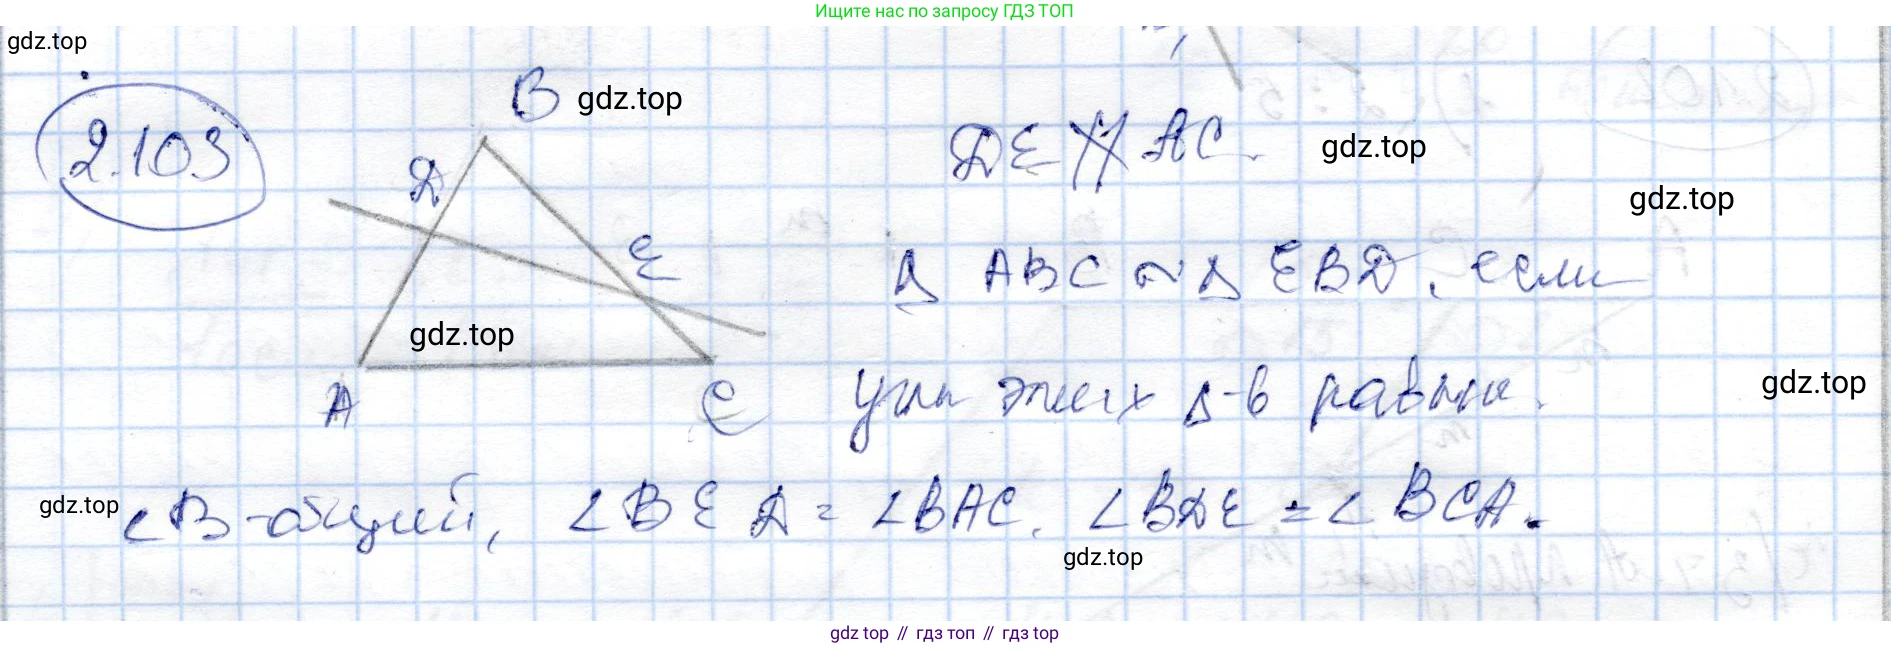 Ищите нас по запросу ГДЗ ТОП
gdz.top
2.103
B gdz.top
DE ∦ AC. gdz.top
D
gdz.top
E
△ ABC ~ △ EBD, если
gdz.top
A
C
углы этих △-в равны.
gdz.top
gdz.top
∠B - общий, ∠BED = ∠BAC, ∠BDE = ∠BCA.
gdz.top
gdz top // гдз топ // гдз top